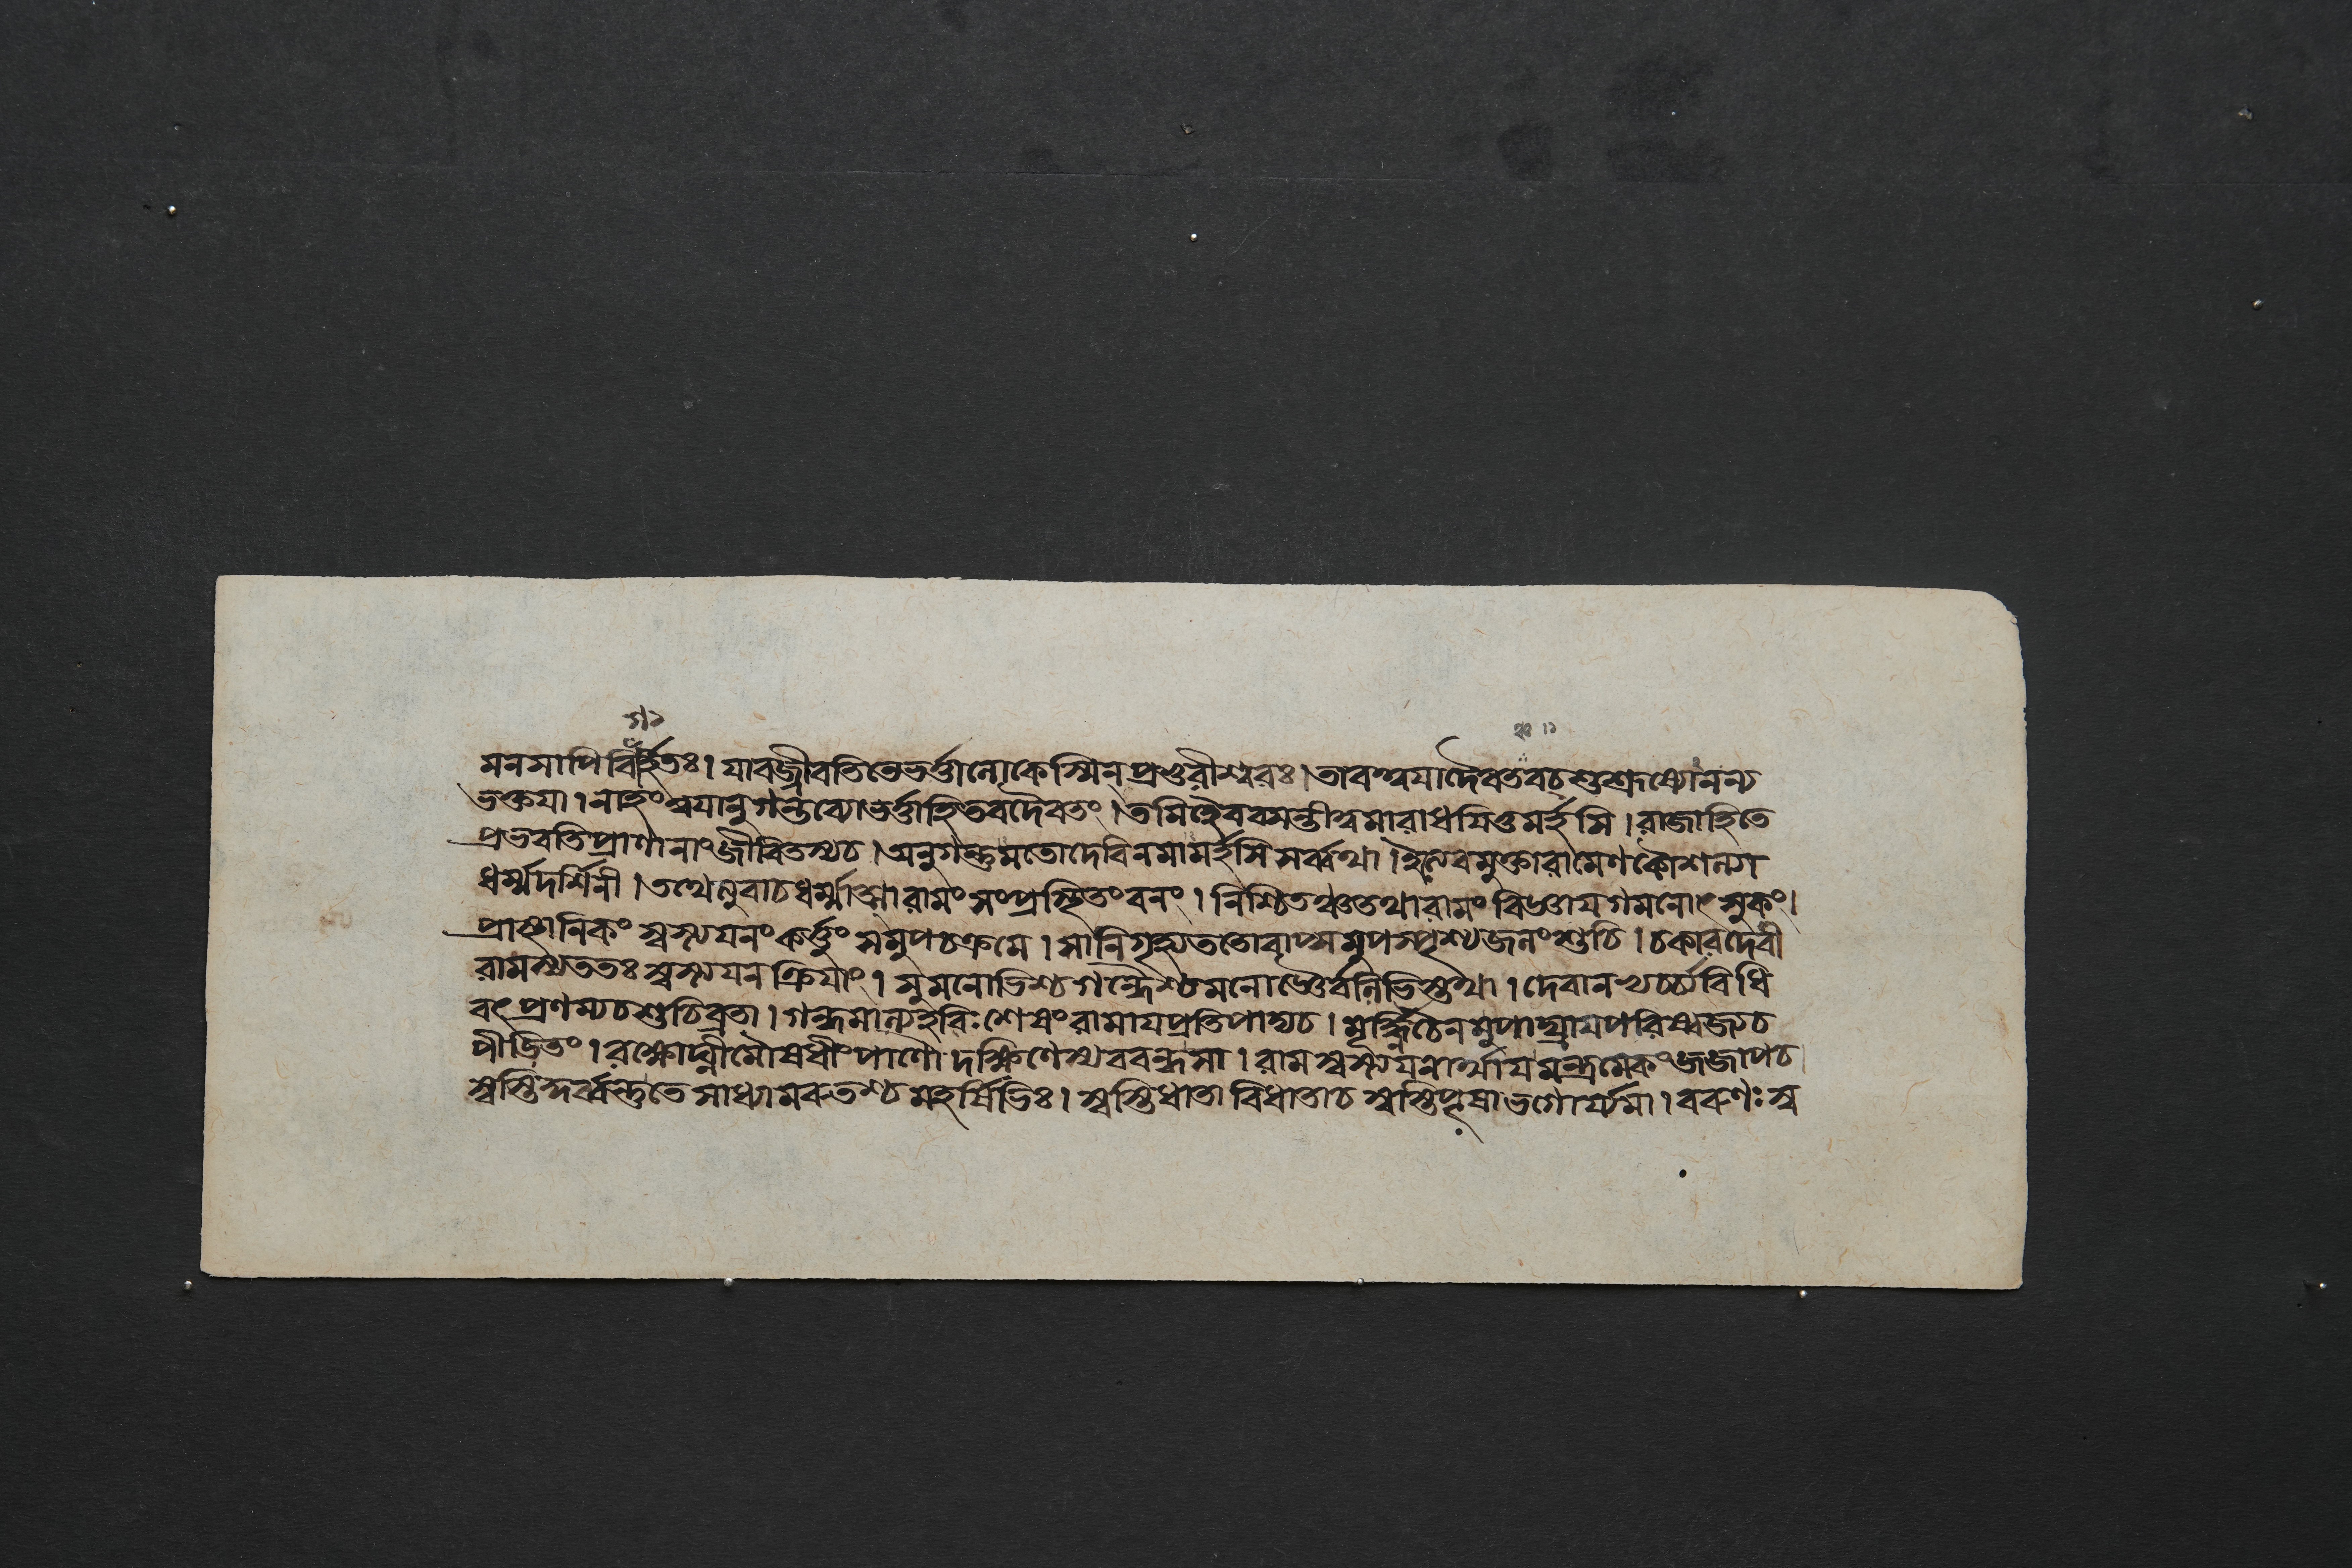 র্গ১
মনসাপি বিহিতঃ। যাবজ্জীবতিতেভর্ত্তালোকেস্মিন্ প্রণ্ডরীশ্বরঃ। তাবত্ত্বযাদৈবতবচ্ শুশ্রূষ্যোনন্য
ভক্তযা। নাহংত্বযানুগন্তব্যোভর্ত্তাহিতবদৈবতং। তমিহৈববসন্তীত্বমারাধযিতুমর্হসি। রাজাহিতে
প্রভবতিপ্রাণানাংজীবিতস্যচ। অনুগন্তুমতোদেবিনমামর্হসিসর্ব্বথা। ইত্যেবমুক্তারামেণকৌশল্যা
ধর্ম্মদর্শিনী। তথেত্যুবাচধর্ম্মাত্মারামংসংপ্রস্থিতংবনং। নিশ্চিতঞ্চতথারামংবিজ্ঞাযগমনোৎসুকং।
প্রাস্থানিকং স্বস্ত্যযনংকর্ত্তুং সমুপচক্রমে। সানিগৃহ্যততোবাষ্পমুপস্পৃশ্যজলংশুচি। চকারদেবী
রামস্যততঃ স্বস্ত্যযনক্রিযাং। সুমনোভিশ্চগন্ধৈশ্চমনোজ্ঞৈর্বলিভিস্তথা। দেবানভ্যর্চ্যবিধি
বৎপ্রণম্যচশুচিব্রতা। গন্ধমাল্যহবিঃশেষংরামাযপ্রতিপাদ্যচ। মূর্দ্ধ্নিচৈনমুপাঘ্রাযপরিষ্বজ্যচ
পীড়িতং। রক্ষোঘ্নীমৌষধীংপাণৌদক্ষিণেস্যববন্ধসা। রামস্বস্ত্যযনার্থাযমন্ত্রমেকংজজাপচ
স্বস্তি কুর্ব্বন্তুতেসাধ্যামরুতশ্চমহর্ষিভিঃ। স্বস্তিধাতাবিধাতাচস্বস্তিপূষাভগোর্যমা। বরুণঃস্ব